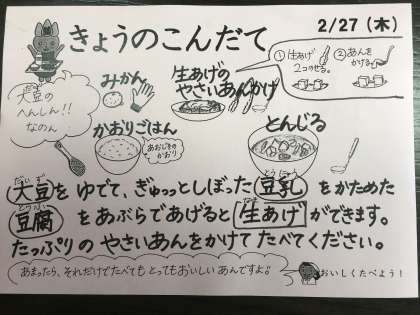 きょうのこんだて
2/27 (木)
大豆の
へんしん!!
なのん
みかん
生あげの
やさいあんかけ
①生あげ
2コのせる。
②あんを
かける
かおりごはん
あおじそのかおり
とんじる
大豆を ゆでて、ぎゅっとしぼった 豆乳 をかためた
豆腐 をあぶらであげると 生あげ ができます。
たっぷりの やさいあんをかけて たべてください。
あまったら、それだけでたべても とってもおいしい あんですよ♪
おいしくたべよう!